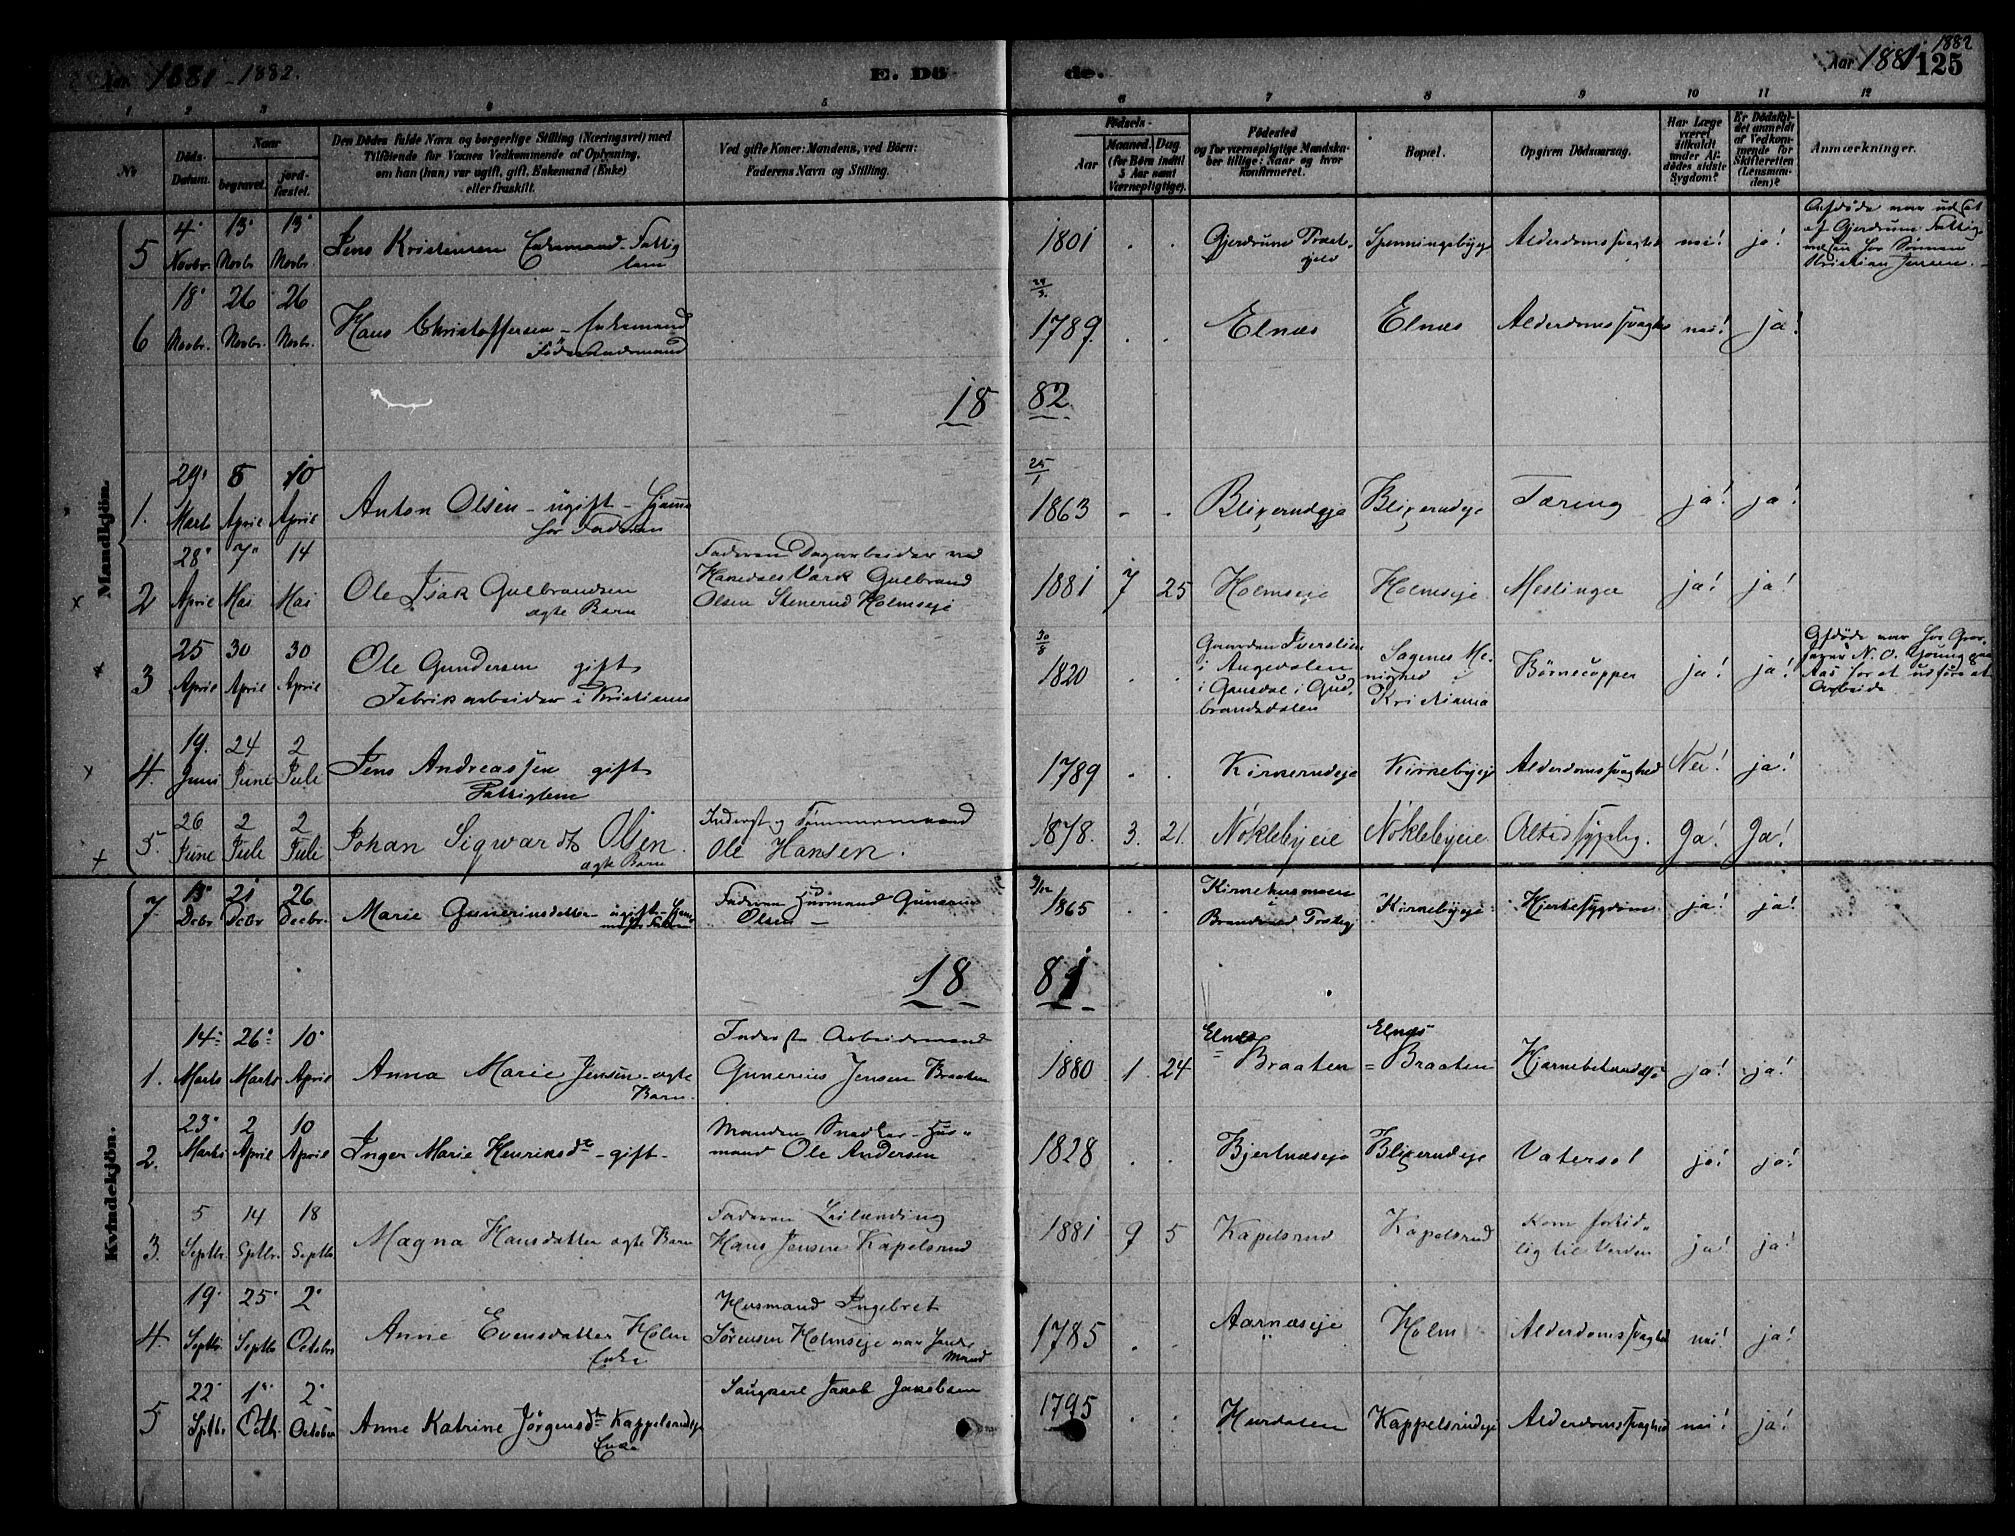 Aar 1881 - 1882.
E. Dö
de.
Aar 1881. 1882
125
1 2 3 4 5 6 7 8 9 10 11 12
No
Döds-Datum.
Naar
begravet.
jord-fæstet.
Den Dødes fulde Navn og borgerlige Stilling (Næringsvei) med
Tilföiende for Voxnes Vedkommende af Oplysning,
om han (hun) var ugift, gift, Enkemand (Enke)
eller fraskilt.
Ved gifte Koner: Mandens, ved Börn:
Faderens Navn og Stilling.
Födsels-
Aar
Maaned. Dag
(for Børn indtil
5 Aar samt
Værnepligtige).
Födested
og for værnepligtige Mandska-
ber tillige: Naar og hvor
konfirmeret.
Bopæl.
Opgiven Dödsaarsag.
Har Læge
været
tilkaldt
under Af-
dødes sidste
Sygdom?
Er Dödsfal-
det anmeldt
af Vedkom-
mende for
Skifteretten
(Lensman-
den)?
Anmærkninger.
Mandkjön.
5 4 Novbr. 13 Novbr. 13 Novbr. Jens Kristensen Enkemand - Fattig
lem
1801 . . Gjerdrum Præste-
gjeld
Alderdomssvaghed nei! ja!
Afdøde var udsat
af Gjerdrum Fattig
hos Sønnen
Kristian Jensen.
6 18 Novbr. 26 Novbr. 26 Novbr. Hans Christoffersen - Enkemand
Føderaadsmand
1789. . . Elnæs Elnæs Alderdomssvaghed nei! ja!
18 82
1. 29 Marts 8 April 10 April Anton Olsen - ugift - hjemme
hos Faderen
25/1 1863 - - Blixerudeje Blixerudeje Tæring ja! ja!
2 28 April 7 Mai 14 Mai Ole Isak Gulbrandsen
ægte Barn
Faderen Dagarbeider ved
Hakedals Værk Gulbrand
Olsen Stenerud Holmseje
1881 7 25 Holmseje Holmseje Meslinger ja! ja!
3 25 April 30 April 30 April Ole Gundersen gift
Fabrikarbeider i Kristiania
30/8 1820 . . Gaarden
i Gausdal i Gud-
brandsdalen
Sagenes Me-
nighed i
Kristiania
Børnecopper ja! ja!
Afdøde var hos
N. O.
Aas for at udføre et
Arbeide
4. 19. Juni 24 June 2 Juli Jens Andreassen gift
Fattiglem
1789 . . Kirkerudeje Kirkebyeje Alderdomssvaghed Nei! ja!
5. 26 June 2 Juli 2 Juli Johan Sigwardt Olsen.
ægte Barn
Inderst og Tømmermand
Ole Hansen.
1878. 3. 21. Nöklebyeie Nöklebyeie Altid sygelig. Ja! Ja!
Kvindekjön.
7. 13 Decbr 21 Decbr 26 Decbr. Marie Guneriusdatter ugift - hjem-
me hos Faderen
Faderen Husmand Gunerius
Olsen -
9/12 1865 . .
Kirkebyeje Hjertesygdom ja! ja!
18 81
1. 14 Marts 26 Marts 10 April Anna Marie Jensen - ægte
Barn.
Inderst Arbeidsmand
Gunerius Jensen Braaten
1880 1. 24 Elnæs
= Braaten Elnæs
= Braaten ja! ja!
2. 23 Marts 2 April 10 April Inger Marie Henriksdt. - gift -
Manden Snedker - Hus-
mand Ole Andersen
1828 . . Bjertnæseje Blixerudeje Vatersot ja! ja!
3. 5 Septbr. 14 Septbr. 18 Septbr Magna Hansdatter ægte Barn
Faderen Leilænding
Hans Jensen Kapelsrud
1881 9 5 Kapelsrud Kapelsrud Kom fortid-
lig til Verden ja! ja!
4. 19 Septbr. 25 Septbr 2 October Anne Evensdatter Holm
Enke
Husmand Ingebret
Sørensen Holmseje var hendes
Mand
1785 . . Aarnæseje Holm Alderdomssvaghed nei! ja!
5 22 Septbr. 1 Octbr. 2 October Anne Katrine Jörgensdt Kappelsrudeje
Enke
Jakob Jakobsen
1795 . . Hurdalen Kappelsrudeje Alderdomssvaghed nei! ja!